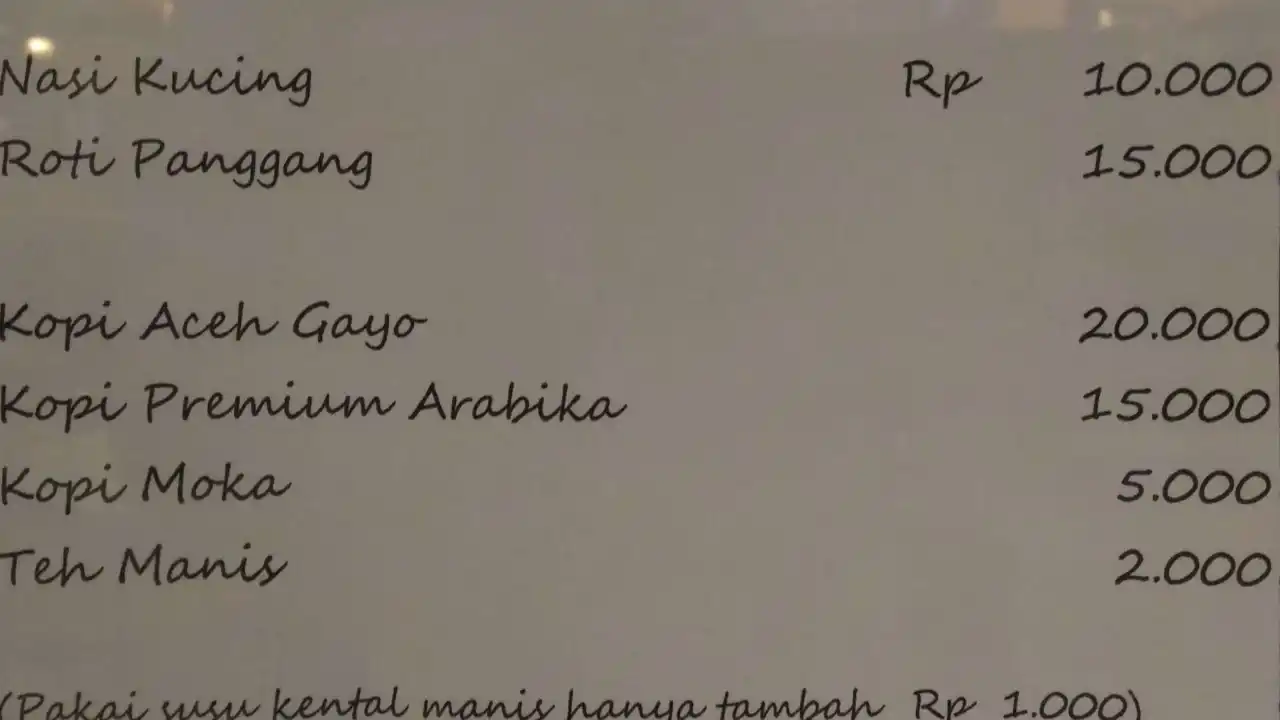 Nasi Kucing Rp 10.000
Roti Panggang 15.000
Kopi Aceh Gayo 20.000
Kopi Premium Arabika 15.000
Kopi Moka 5.000
Teh Manis 2.000
(Pakai susu kental manis hanya tambah Rp 1.000)